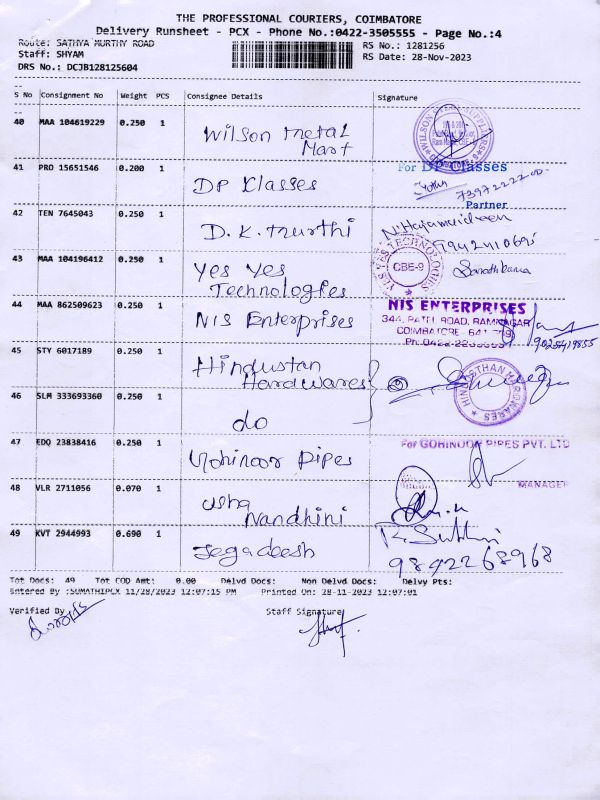 THE PROFESSIONAL COURIERS, COIMBATORE
Delivery Runsheet - PCX - Phone No.:0422-3505555 - Page No.:4
Route: SATHYA MURTHY ROAD
RS No.: 1281256
Staff: SHYAM
RS Date: 28-Nov-2023
DRS No.: DCJB128125604
S No Consignment No Weight PCS Consignee Details Signature
40 MAA 104619229 0.250 1 Wilson Metal Mart
41 PRO 15651546 0.200 1 DP Classes For DP Classes
Partner
42 TEN 7645043 0.250 1 D.K. Murthi
43 MAA 104196412 0.250 1 Yes Yes Technologies
YES YES TECHNOLOGIES CBE-9
44 MAA 862509623 0.250 1 NIS Enterprises
NIS ENTERPRISES
344, PATEL ROAD, RAMNAGAR
COIMBATORE
9025419855
45 STY 6017189 0.250 1 Hindustan Hardwares
HINDUSTHAN HARDWARES
46 SLM 333693360 0.250 1 do
47 EDQ 23838416 0.250 1 Gohinoor Pipes
For GOHINOOR PIPES PVT. LTD
MANAGER
48 VLR 2711056 0.070 1 Usha Nandhini
49 KVT 2944993 0.690 1 Jegadeesh
9842268968
Tot Docs: 49 Tot COD Amt: 0.00 Delvd Docs: Non Delvd Docs: Delvy Pts:
Entered By :SUMATHIPCX 11/28/2023 12:07:15 PM Printed On: 28-11-2023 12:07:01
Verified By Staff Signature